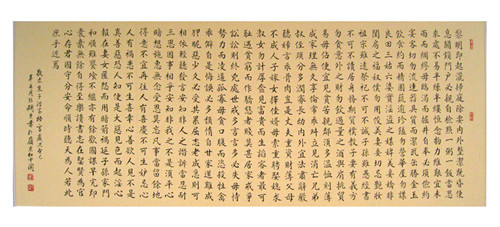 黎明即起灑掃庭除要內外整潔既昏便
息關鎖門戶必親自檢點一粥一飯當思
來處不易半絲半縷恒念物力維艱宜未
雨而綢繆毋臨渴而掘井自奉必須儉約
宴客切勿流連器具質而潔瓦缶勝金玉
飲食約而精園蔬逾珍饈勿營華屋勿謀
良田三姑六婆實淫盜之媒婢美妾嬌非
閨房之福奴僕勿用俊美妻妾切忌艷妝
祖宗雖遠祭祀不可不誠子孫雖愚經書
不可不讀居身務期質樸教子要有義方
勿貪意外之財勿飲過量之酒與肩挑貿
易毋佔便宜見貧苦親鄰須多溫恤刻薄
成家理無久享倫常乖舛立見消亡兄弟
叔侄須分多潤寡長幼內外宜法肅辭嚴
聽婦言乖骨肉豈是丈夫重資財薄父母
不成人子嫁女擇佳婿毋索重聘娶媳求
淑女勿計厚奩見富貴而生諂容者最可
恥遇貧窮而作驕態者賤莫甚居家戒爭
訟訟則終凶處世戒多言言多必失毋恃
勢力而凌逼孤寡毋貪口腹而恣殺牲禽
乖僻自是悔誤必多頹惰自甘家道難成
狎暱惡少久必受其累屈志老成急則可
相依輕聽發言安知非人之譖訴當忍耐
三思因事相爭焉知非我之不是須平心
暗想施惠無念受恩莫忘凡事當留餘地
得意不宜再往人有喜慶不可生妒忌心
人有禍患不可生喜幸心善欲人見不是
真善惡恐人知便是大惡見色而起淫心
報在妻女匿怨而用暗箭禍延子孫家門
和順雖饔飧不繼亦有餘歡國課早完即
囊橐無餘自得至樂讀書志在聖賢為官
心存君國守分安命順時聽天為人若此
庶乎近焉